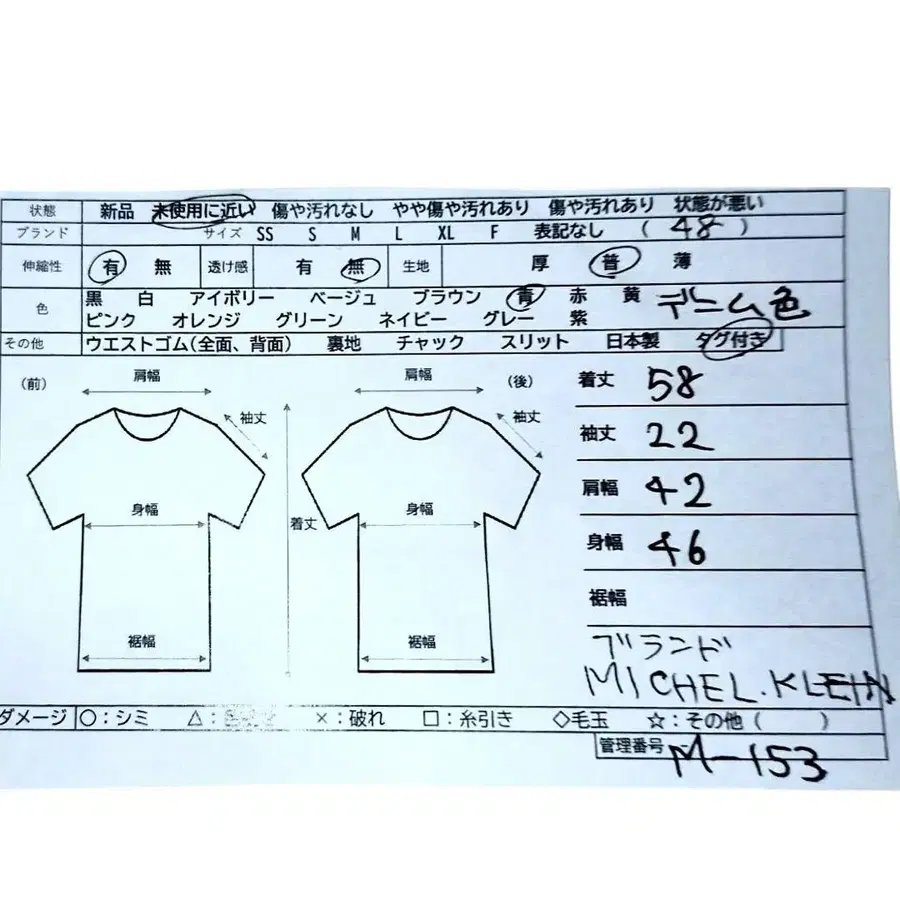 状態 新品 未使用に近い 傷や汚れなし やや傷や汚れあり 傷や汚れあり 状態が悪い
ブランド サイズ SS S M L XL F 表記なし ( 48 )
伸縮性 有 無 透け感 有 無 生地 厚 普 薄
色 黒 白 アイボリー ベージュ ブラウン 青 赤 黄 デニム色
ピンク オレンジ グリーン ネイビー グレー 紫
その他 ウエストゴム(全面、背面) 裏地 チャック スリット 日本製 タグ付き
(前) 肩幅 肩幅 (後) 着丈 58
袖丈 袖丈 袖丈 22
肩幅 42
身幅 着丈 身幅 身幅 46
裾幅 裾幅 裾幅
ブランド
MICHEL.KLEIN
ダメージ ○:シミ △: ×:破れ □:糸引き ◇毛玉 ☆:その他( )
管理番号 M-153